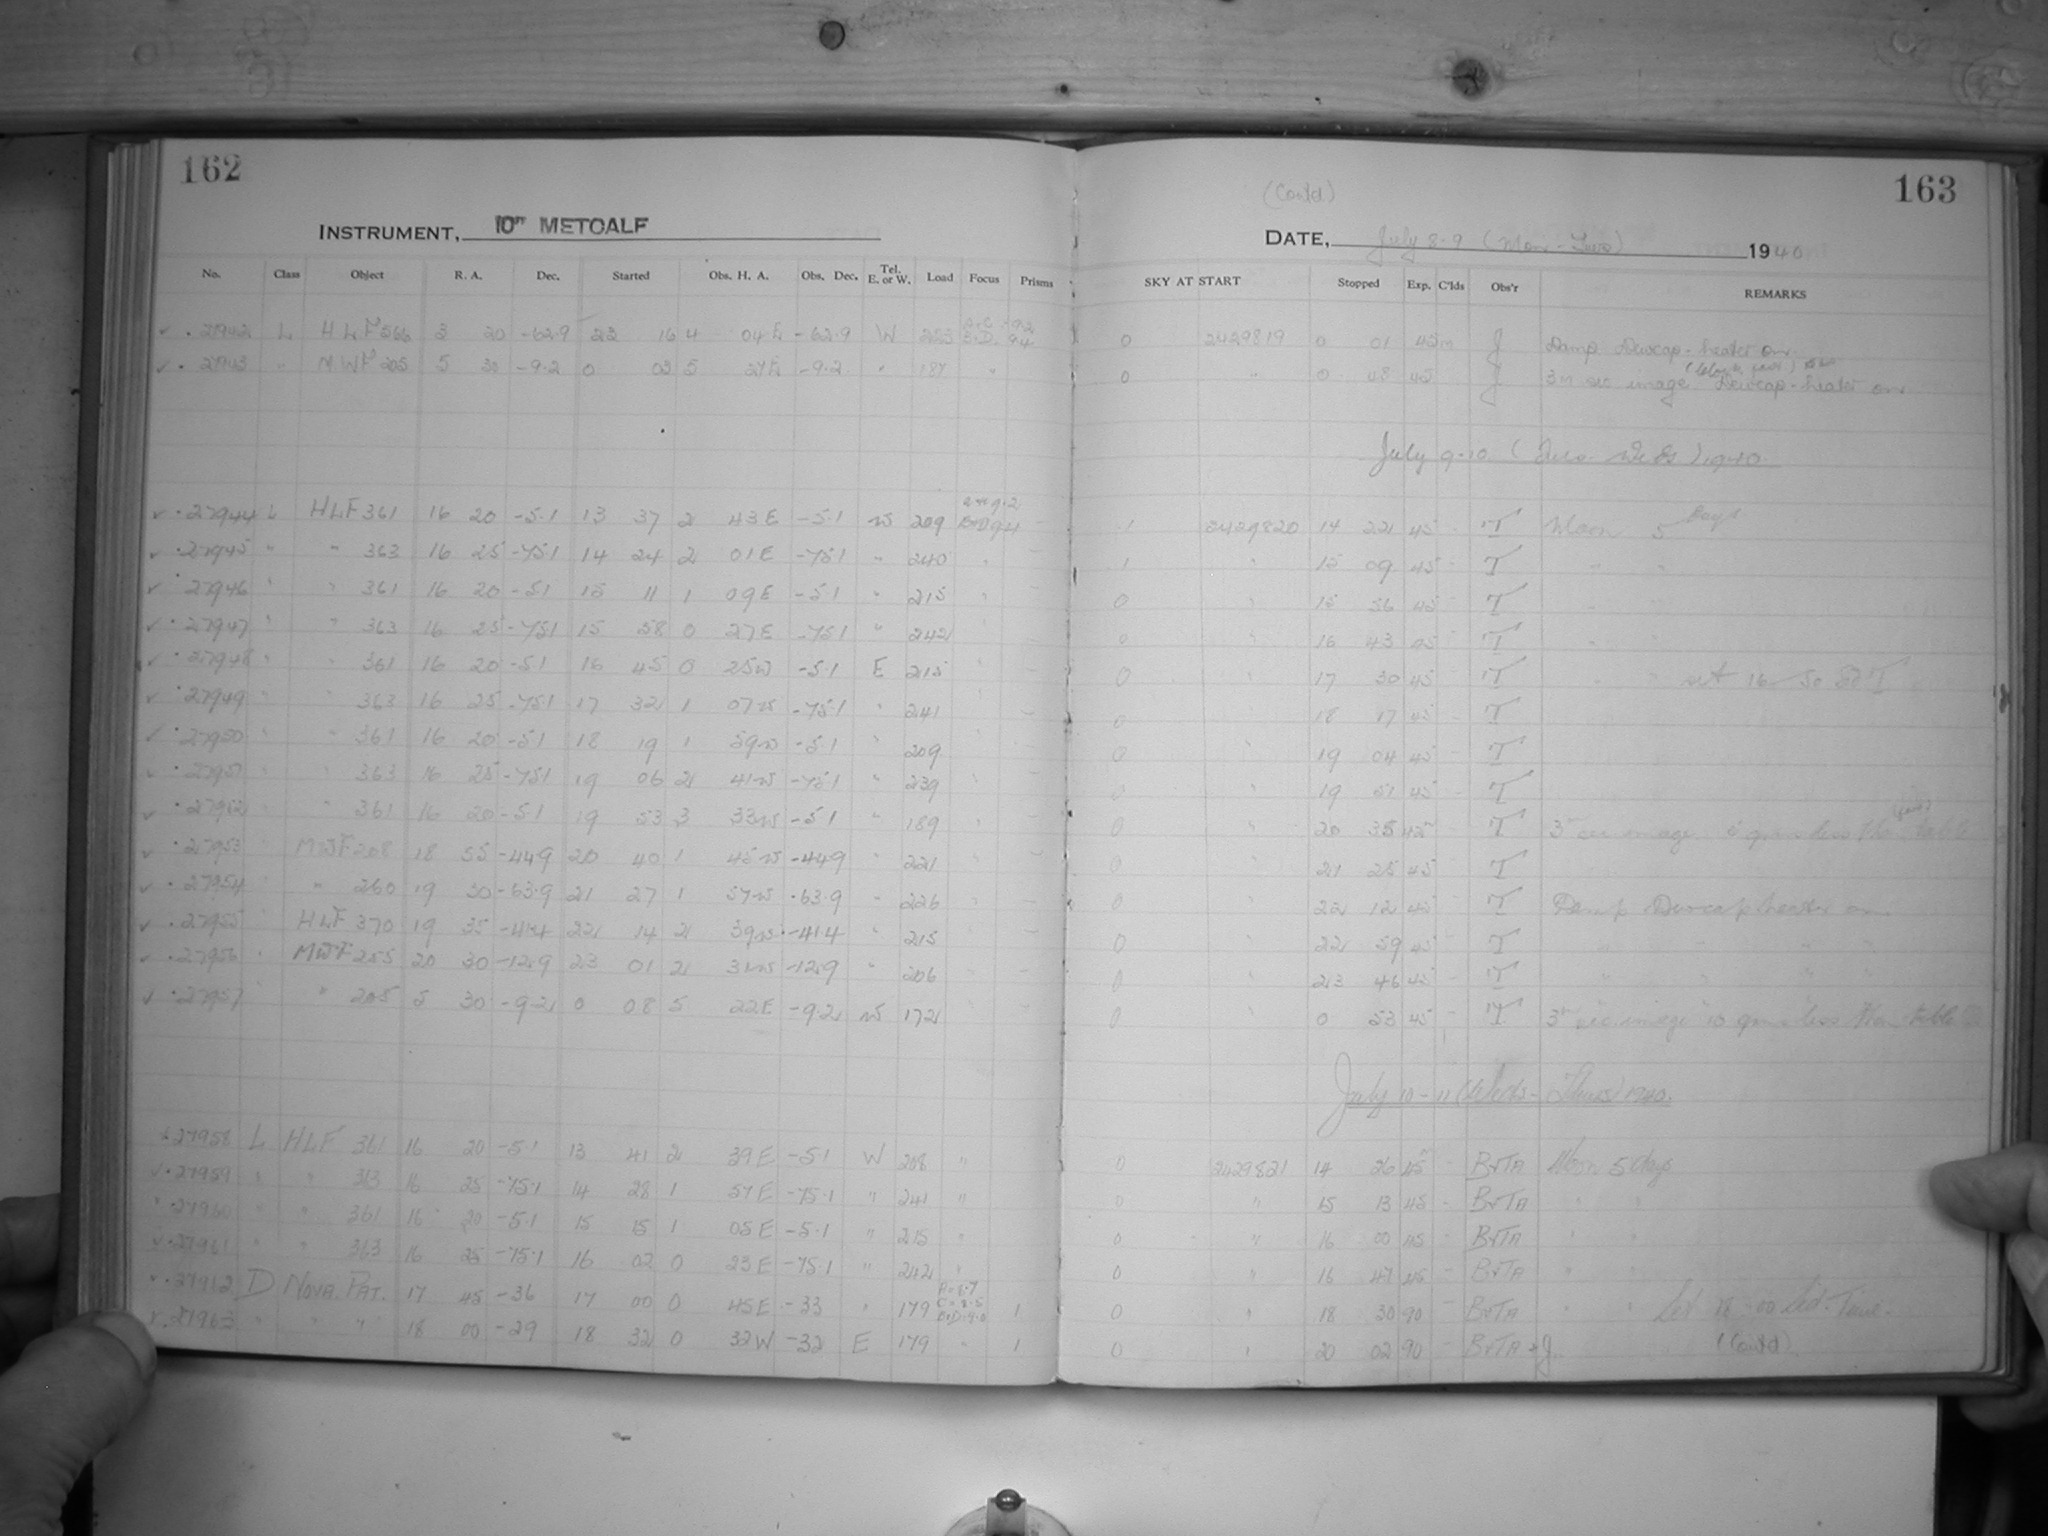 162
INSTRUMENT, 10" METCALF
No. Class Object R. A. Dec. Started Obs. H. A. Obs. Dec. Tel. E. or W. Load Focus Prisms
27942 L HLF 566 3 20 -62.9 23 16 4 04 E -62.9 W 223
27943 " MWF 205 5 30 -9.2 0 03 5 27 E -9.2 " 187 "
27944 L HLF 361 16 20 -5.1 13 37 2 43 E -5.1 W 209
27945 " " 363 16 25 -75.1 14 24 2 01 E -75.1 " 240 "
27946 " " 361 16 20 -5.1 15 11 1 09 E -5.1 " 215 "
27947 " " 363 16 25 -75.1 15 58 0 27 E -75.1 " 242
27948 " " 361 16 20 -5.1 16 45 0 25 W -5.1 E 215
27949 " " 363 16 25 -75.1 17 32 1 07 W -75.1 " 241
27950 " " 361 16 20 -5.1 18 19 1 59 W -5.1 " 209
27951 " " 363 16 25 -75.1 19 06 2 41 W -75.1 " 239
27952 " " 361 16 20 -5.1 19 53 3 33 W -5.1 " 189
27953 " MWF 208 18 55 -44.9 20 40 1 45 W -44.9 " 221
27954 " " 260 19 30 -63.9 21 27 1 57 W -63.9 " 226
27955 " HLF 370 19 35 -41.4 22 14 2 39 W -41.4 " 215
27956 " MWF 255 20 30 -12.9 23 01 2 31 W -12.9 " 206
27957 " " 205 5 30 -9.2 0 08 5 22 E -9.2 W 172
27958 L HLF 361 16 20 -5.1 13 41 2 39 E -5.1 W 208 "
27959 " " 363 16 25 -75.1 14 28 1 57 E -75.1 " 241 "
27960 " " 361 16 20 -5.1 15 15 1 05 E -5.1 " 215 "
27961 " " 363 16 25 -75.1 16 02 0 23 E -75.1 " 242 "
27962 D NOVA. PAT. 17 45 -36 17 00 0 45 E -33 " 179 1
27963 " " " 18 00 -29 18 32 0 32 W -32 E 179 " 1
(Contd)
163
DATE, July 8-9 (Mon-Tues) 1940
SKY AT START Stopped Exp. C'lds Obs'r REMARKS
0 2429819 0 01 45m J Damp Dewcap-heater on.
0 " 0 48 45 J 3rd sec image Dewcap-heater on.
July 9-10 (Tues Weds) 1940
1 2429820 14 22 45 - T Moon 5 Days
1 " 15 09 45 - T " "
0 " 15 56 45 T
0 " 16 43 45 T
0 " 17 30 45 T " " set 16 50 Sd T
0 18 17 45 T
0 " 19 04 45 T
0 " 19 51 45 T
0 " 20 35 42m T 3rd sec image
0 " 21 25 45 T
0 " 22 12 45 T Damp Dewcap heater on.
0 " 22 59 45 T
0 " 23 46 45 T
0 " 0 53 45 T 3rd sec image 10 gm less than table
July 10-11 (Weds-Thurs) 1940.
0 2429821 14 26 45m - BVTA Moon 5 days
0 " 15 13 45 - BVTA " "
0 " 16 00 45 - BVTA " "
0 " 16 47 45 - BVTA " "
0 " 18 30 90 - BVTA " " Set 18.00 Sid. Time.
0 " 20 02 90 - BVTA + J.
(Contd)